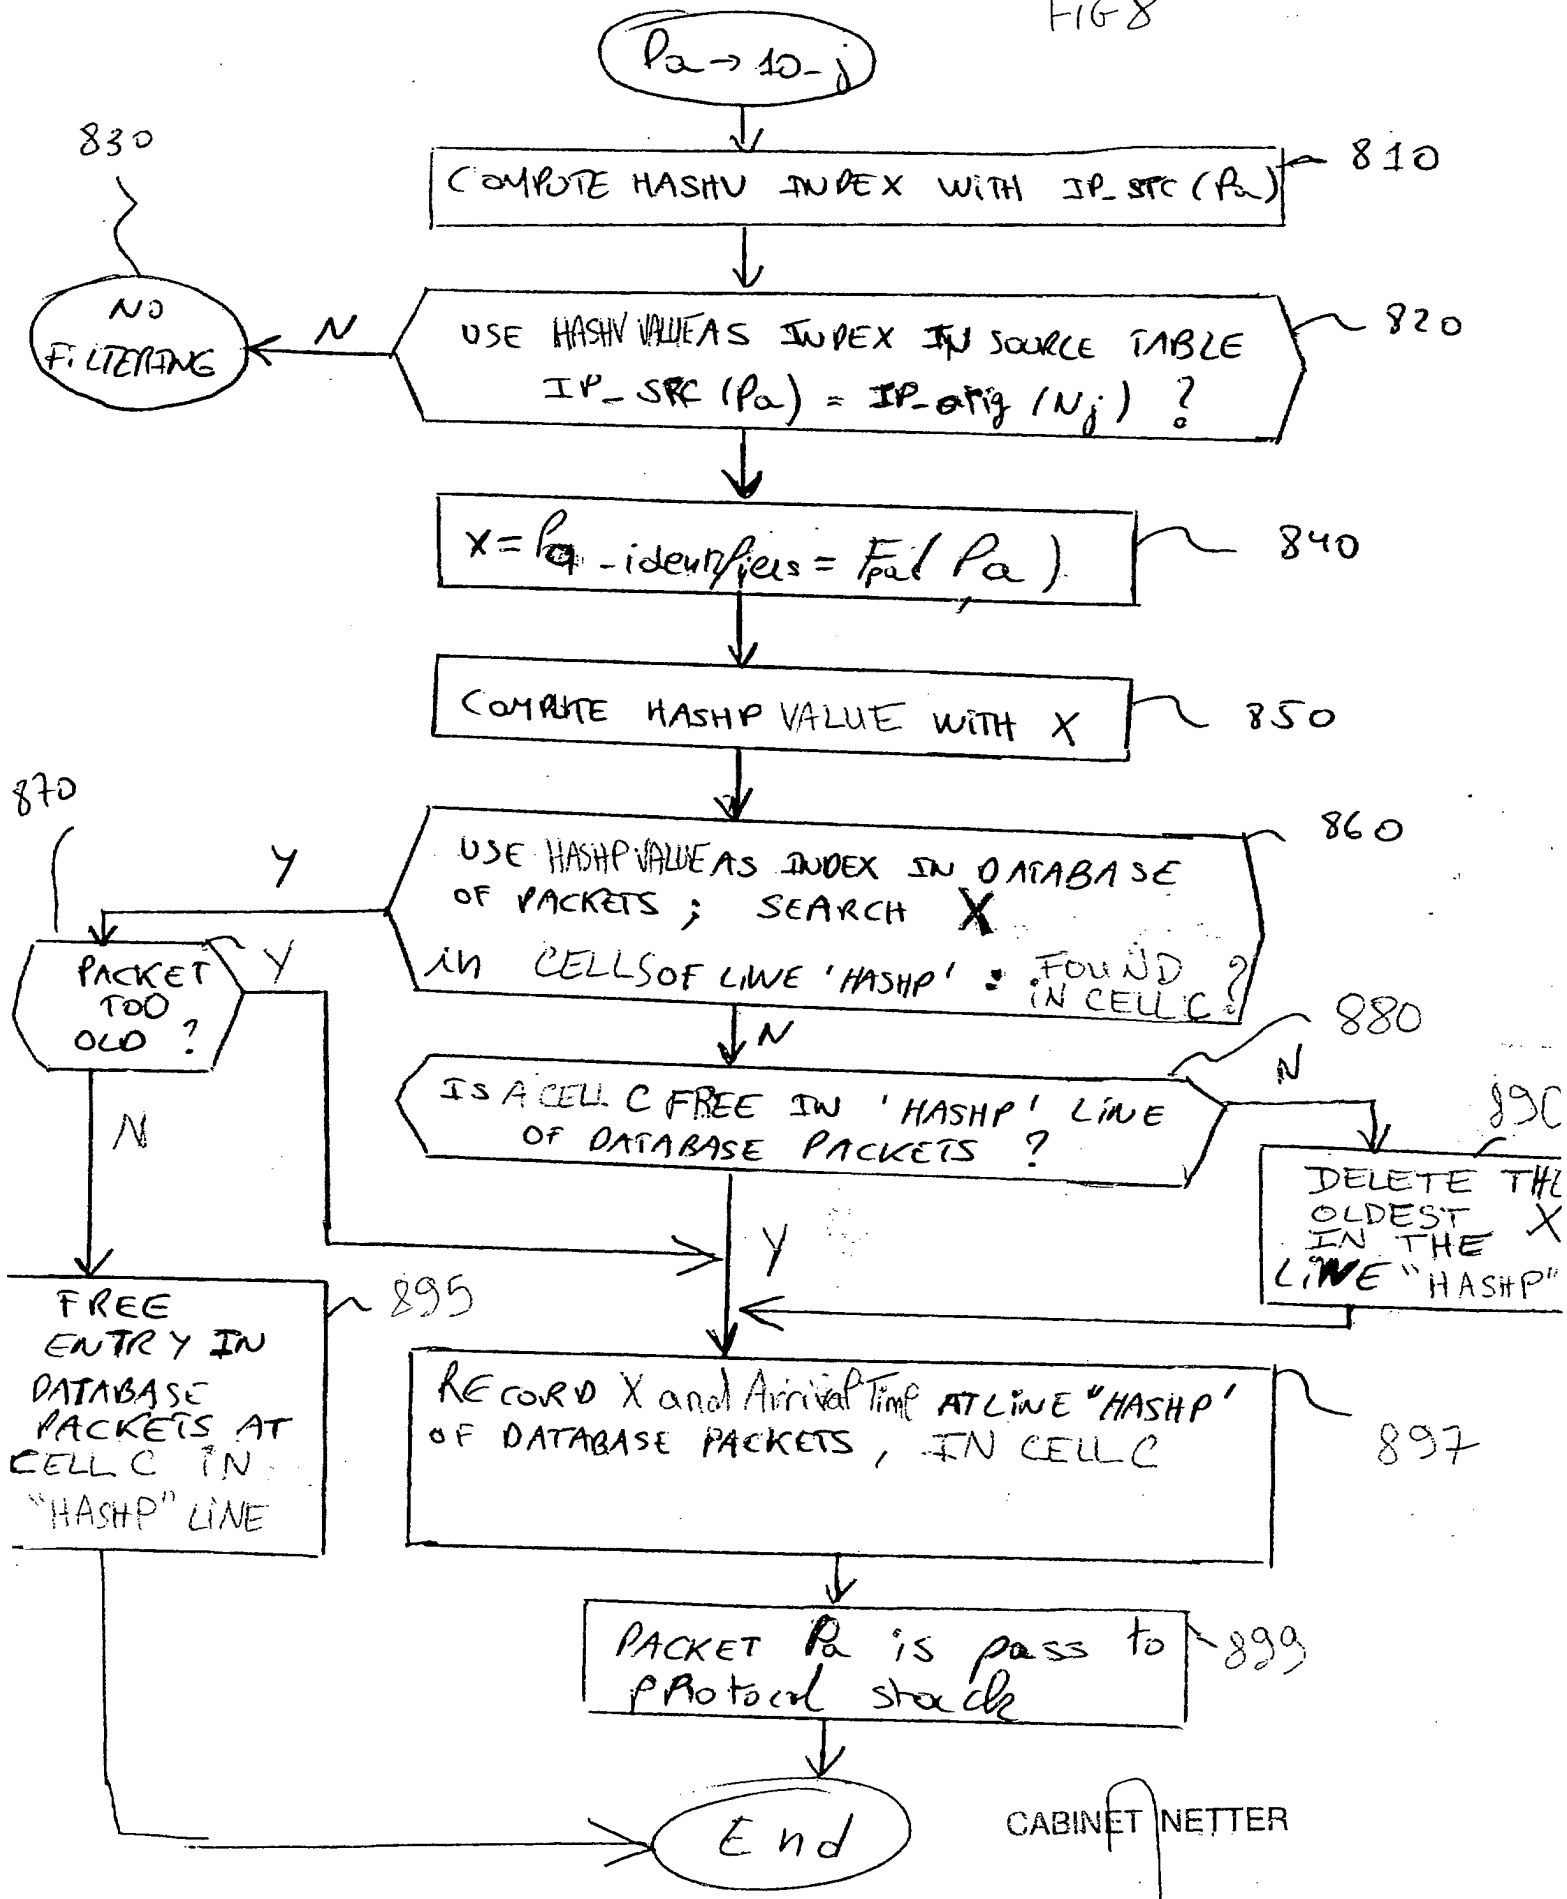 FIG 8
Pa → 10-j
830
810
COMPUTE HASHV INDEX WITH IP_SRC (Pa)
NO
FILTERING
N
820
USE HASHV VALUE AS INDEX IN SOURCE TABLE
IP_SRC (Pa) = IP_orig (Nj) ?
840
X = Pa_identifiers = F ( Pa )
COMPUTE HASHP VALUE WITH X
850
870
860
Y
USE HASHP VALUE AS INDEX IN DATABASE
OF PACKETS ; SEARCH X
in CELLS OF LINE 'HASHP' : FOUND
IN CELL C ?
PACKET
TOO
OLD ?
Y
N
N
880
IS A CELL C FREE IN 'HASHP' LINE
OF DATABASE PACKETS ?
N
890
DELETE THE
OLDEST X
IN THE
LINE "HASHP"
Y
895
FREE
ENTRY IN
DATABASE
PACKETS AT
CELL C IN
"HASHP" LINE
RECORD X and Arrival Time AT LINE "HASHP'
OF DATABASE PACKETS, IN CELL C
897
PACKET Pa is pass to
PROtocol stack
899
End
CABINET NETTER